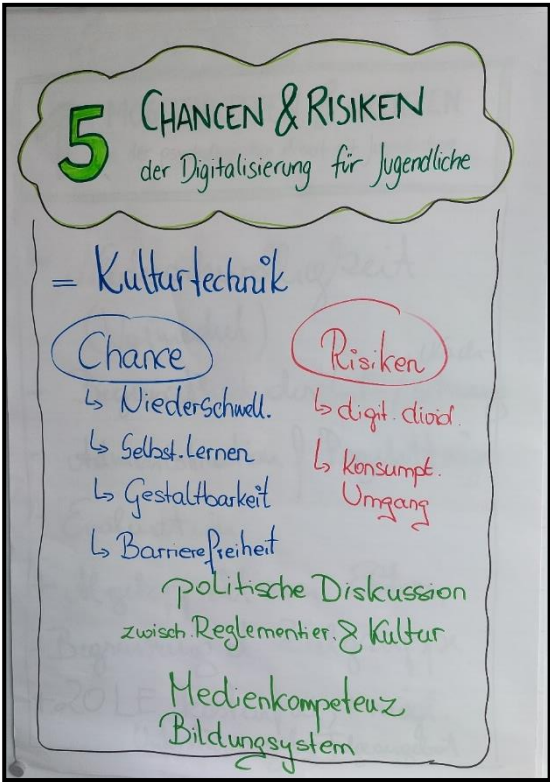 5 CHANCEN & RISIKEN
der Digitalisierung für Jugendliche
= Kulturtechnik
Chance
↳ Niederschwell.
↳ Selbst. Lernen
↳ Gestaltbarkeit
↳ Barrierefreiheit
Risiken
↳ digit. divid.
↳ Konsumpt.
Umgang
politische Diskussion
zwisch. Reglementier. & Kultur
Medienkompetenz
Bildungsystem